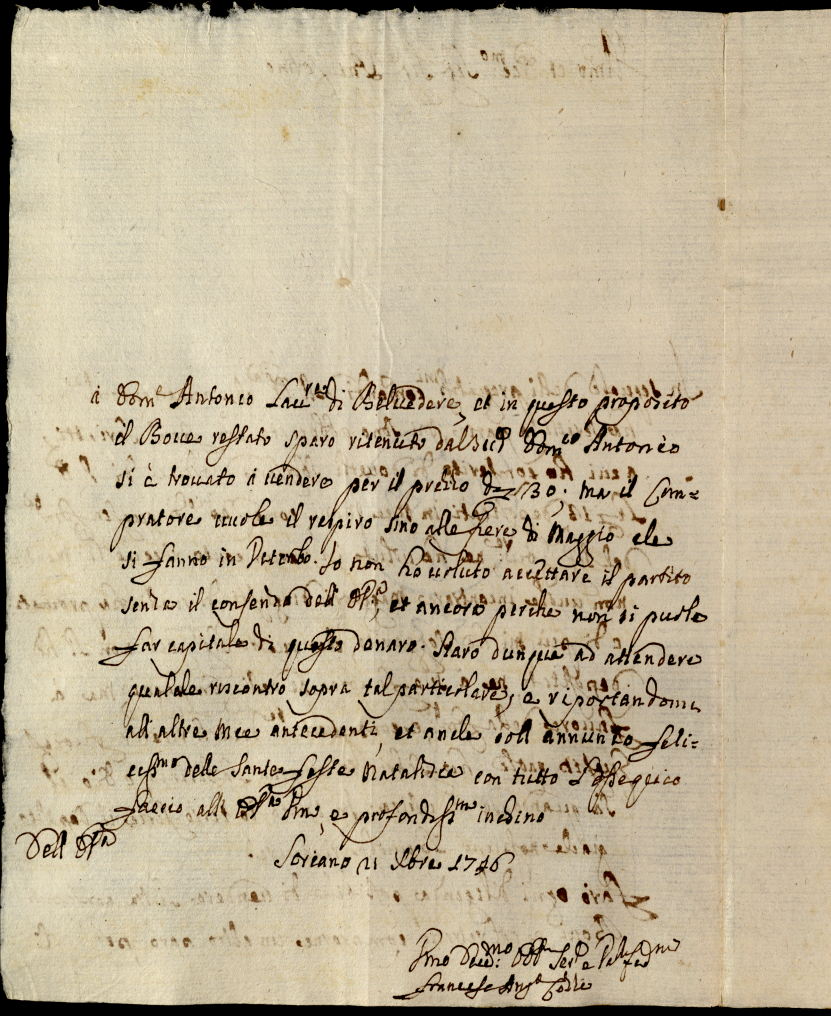 à Dom.co Antonio Lau.re di Belvedere, et in questo proposito
il Bove restato sparo ritenuto dal sud.o Dom.co Antonio
si è trovato à vendere per il prezzo di 30: ma il Com=
pratore vuole il respiro sino alle fiere di Maggio che
si fanno in Viterbo. Io non hò voluto accettare il partito
senza il consenso dell'
et ancora perche non si puole
far capitale di questo denaro. Starò dunque ad attendere
qualche riscontro sopra tal particolare, e riportandomi
all'altre mie antecedenti, et anche coll'annunzio feli=
ciss.mo delle Sante feste Natalizie con tutto l'ossequio
faccio all' e profondiss.mo inchino
Dell'
Soriano 21 Xbre 1746
Francesco Ang.o